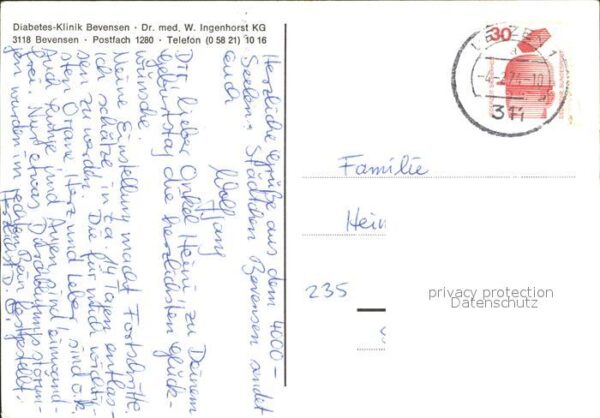 Diabetes-Klinik Bevensen · Dr. med. W. Ingenhorst KG
3118 Bevensen · Postfach 1280 · Telefon (0 58 21) 10 16
Herzliche Grüße aus dem 4000-
Seelen-Städtchen Bevensen sendet
euch
Wolfgang
Dir lieber Onkel Heini, zu Deinem
Geburtstag die herzlichsten Glück-
wünsche
Meine Einstellung macht Fortschritte
ich schätze in ca. 14 Tagen entlas-
sen zu werden. Die für mich wichtig-
sten Organe Herz und Leber sind o.k.
Auch Lunge und Augen sind einwand-
frei. Nur etwas Durchblutungsstörun-
gen wurden im rechten Bein festgestellt.
30
UELZEN 1
-4.-2.74-10
311
Familie
Hein
235
privacy protection
Datenschutz